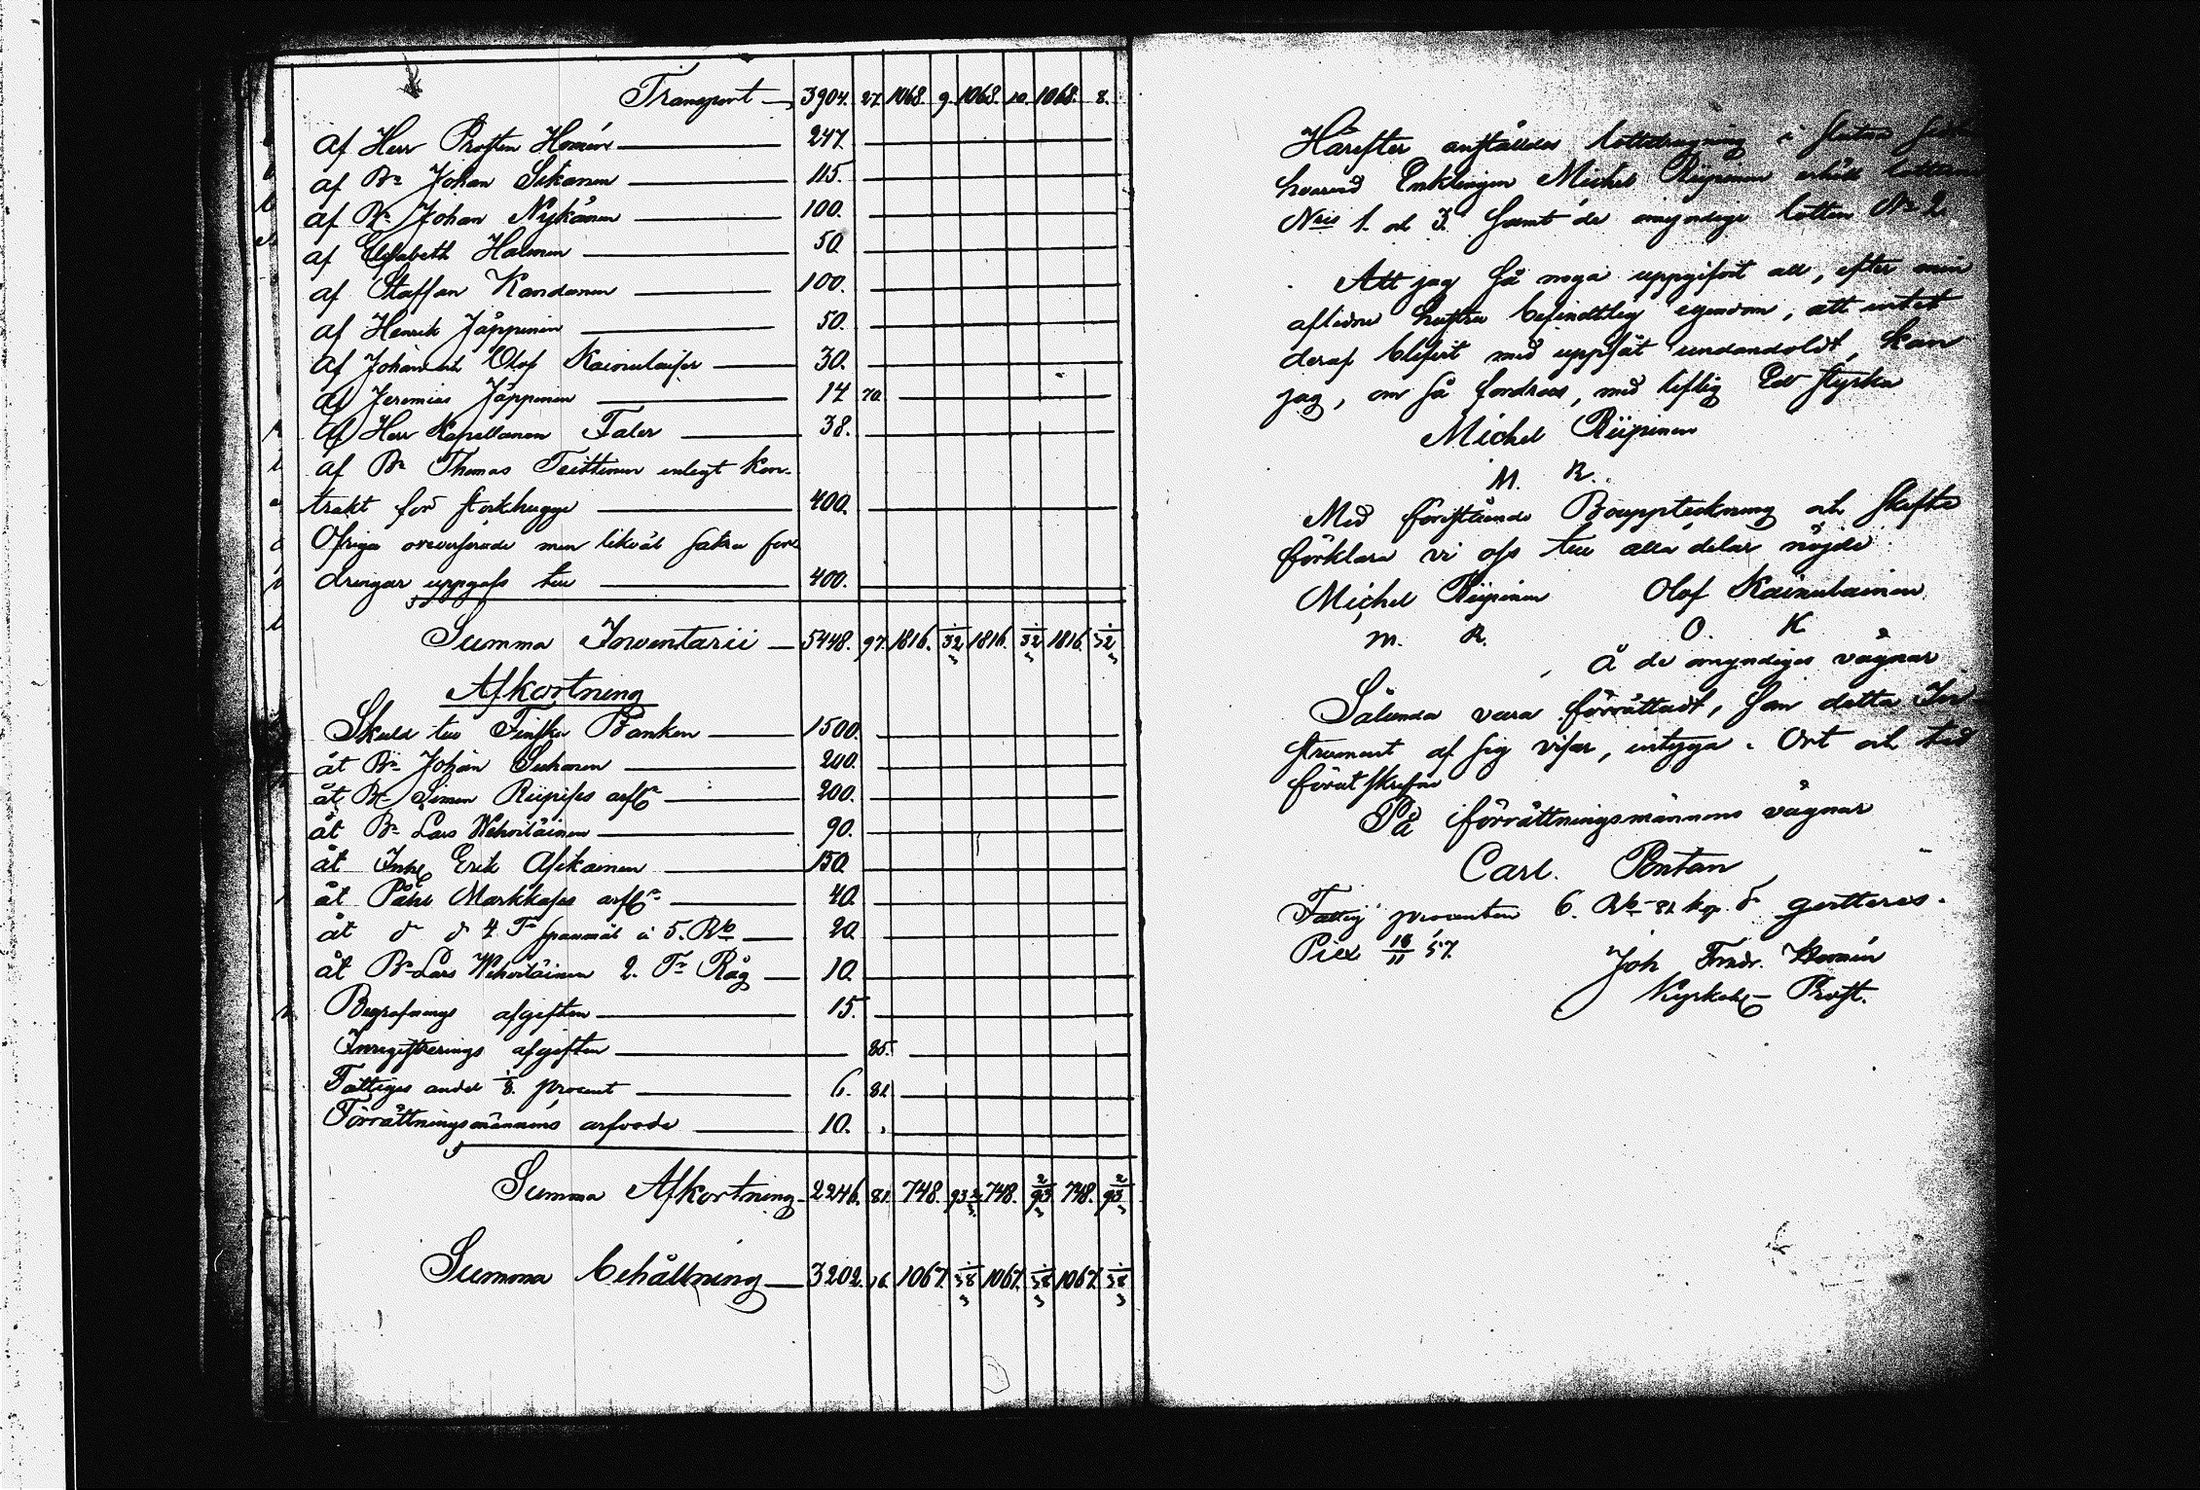 Transport 3904. 27. 1068. 9. 1068. 10. 1068. 8.
af Herr Prosten 247.
af Bn Johan Sikanen 115.
af Bn Johan Nykänen 100.
af Elisabeth Halonen 50.
af Staffan 100.
af Henrik Jäppinen 50.
af Johan och Olof 30.
af Jeremias Jäppinen 14 70.
af Herr Kapellanen Faler 38.
af Bn Thomas Teittinen enligt kon-
trakt för storkhygge 400.
Öfriga men likväl säkra ford
dringar uppgafs till 400.
Summa Inventarii 5448. 97. 1816. 32 1/3 1816. 32 1/3 1816. 32 1/3
Afkortning
Skuld till Finska Banken 1500.
åt Bn Johan 200.
åt Bn Simon Riipises arfvr 200.
åt Bn Lars Wehviläinen 90.
åt Inhs Erik Asikainen 150.
åt Påhl Markkases arfvr 40.
åt do do 4 Tr spanmål à 5. Rb 20.
åt Bn Lars Wehviläinen 2. Tr Råg 10.
Begrafnings afgiften 15.
Inregistrerings afgiften 85.
Fattiges andel 1/8. procent 6. 82
Förrättningsmännens arfvode 10.
Summa Afkortning 2246. 81. 748. 93 2/3 748. 93 2/3 748. 93 2/3
Summa behållning 3202. 16. 1067. 38 1/3 1067. 38 1/3 1067. 38 1/3
Härefter anställdes lottdragning i slutna
hvarvid Enklingen Michel Riipinen erhöll lotterne
Nris 1. och 3. samt de omyndige lotten No 2
Att jag så noga uppgifvit all, efter min
aflidne hustru befindtlig egendom, att intet
deraf blifvit med uppsåt undandoldt, kan
jag, om så fordras, med liflig Ed styrka
Michel Riipinen
M. R.
Med förestående Bouppteckning och skifte
förklara vi oss till alla delar nöjde
Michel Riipinen Olof Kainulainen
M. R. O. K
Å de omyndiges vägnar
Sålunda vara förrättadt, som detta In-
strument af sig visar, intyga. Ort och tid
förut skrefne
På förrättningsmännens vägnar
Carl. Pontan
Fattig procenten 6. Rb 82 kop. Sr qvitteras.
Piex 18/11 57.
Joh Fredr.
Kyrkoh. Prost.